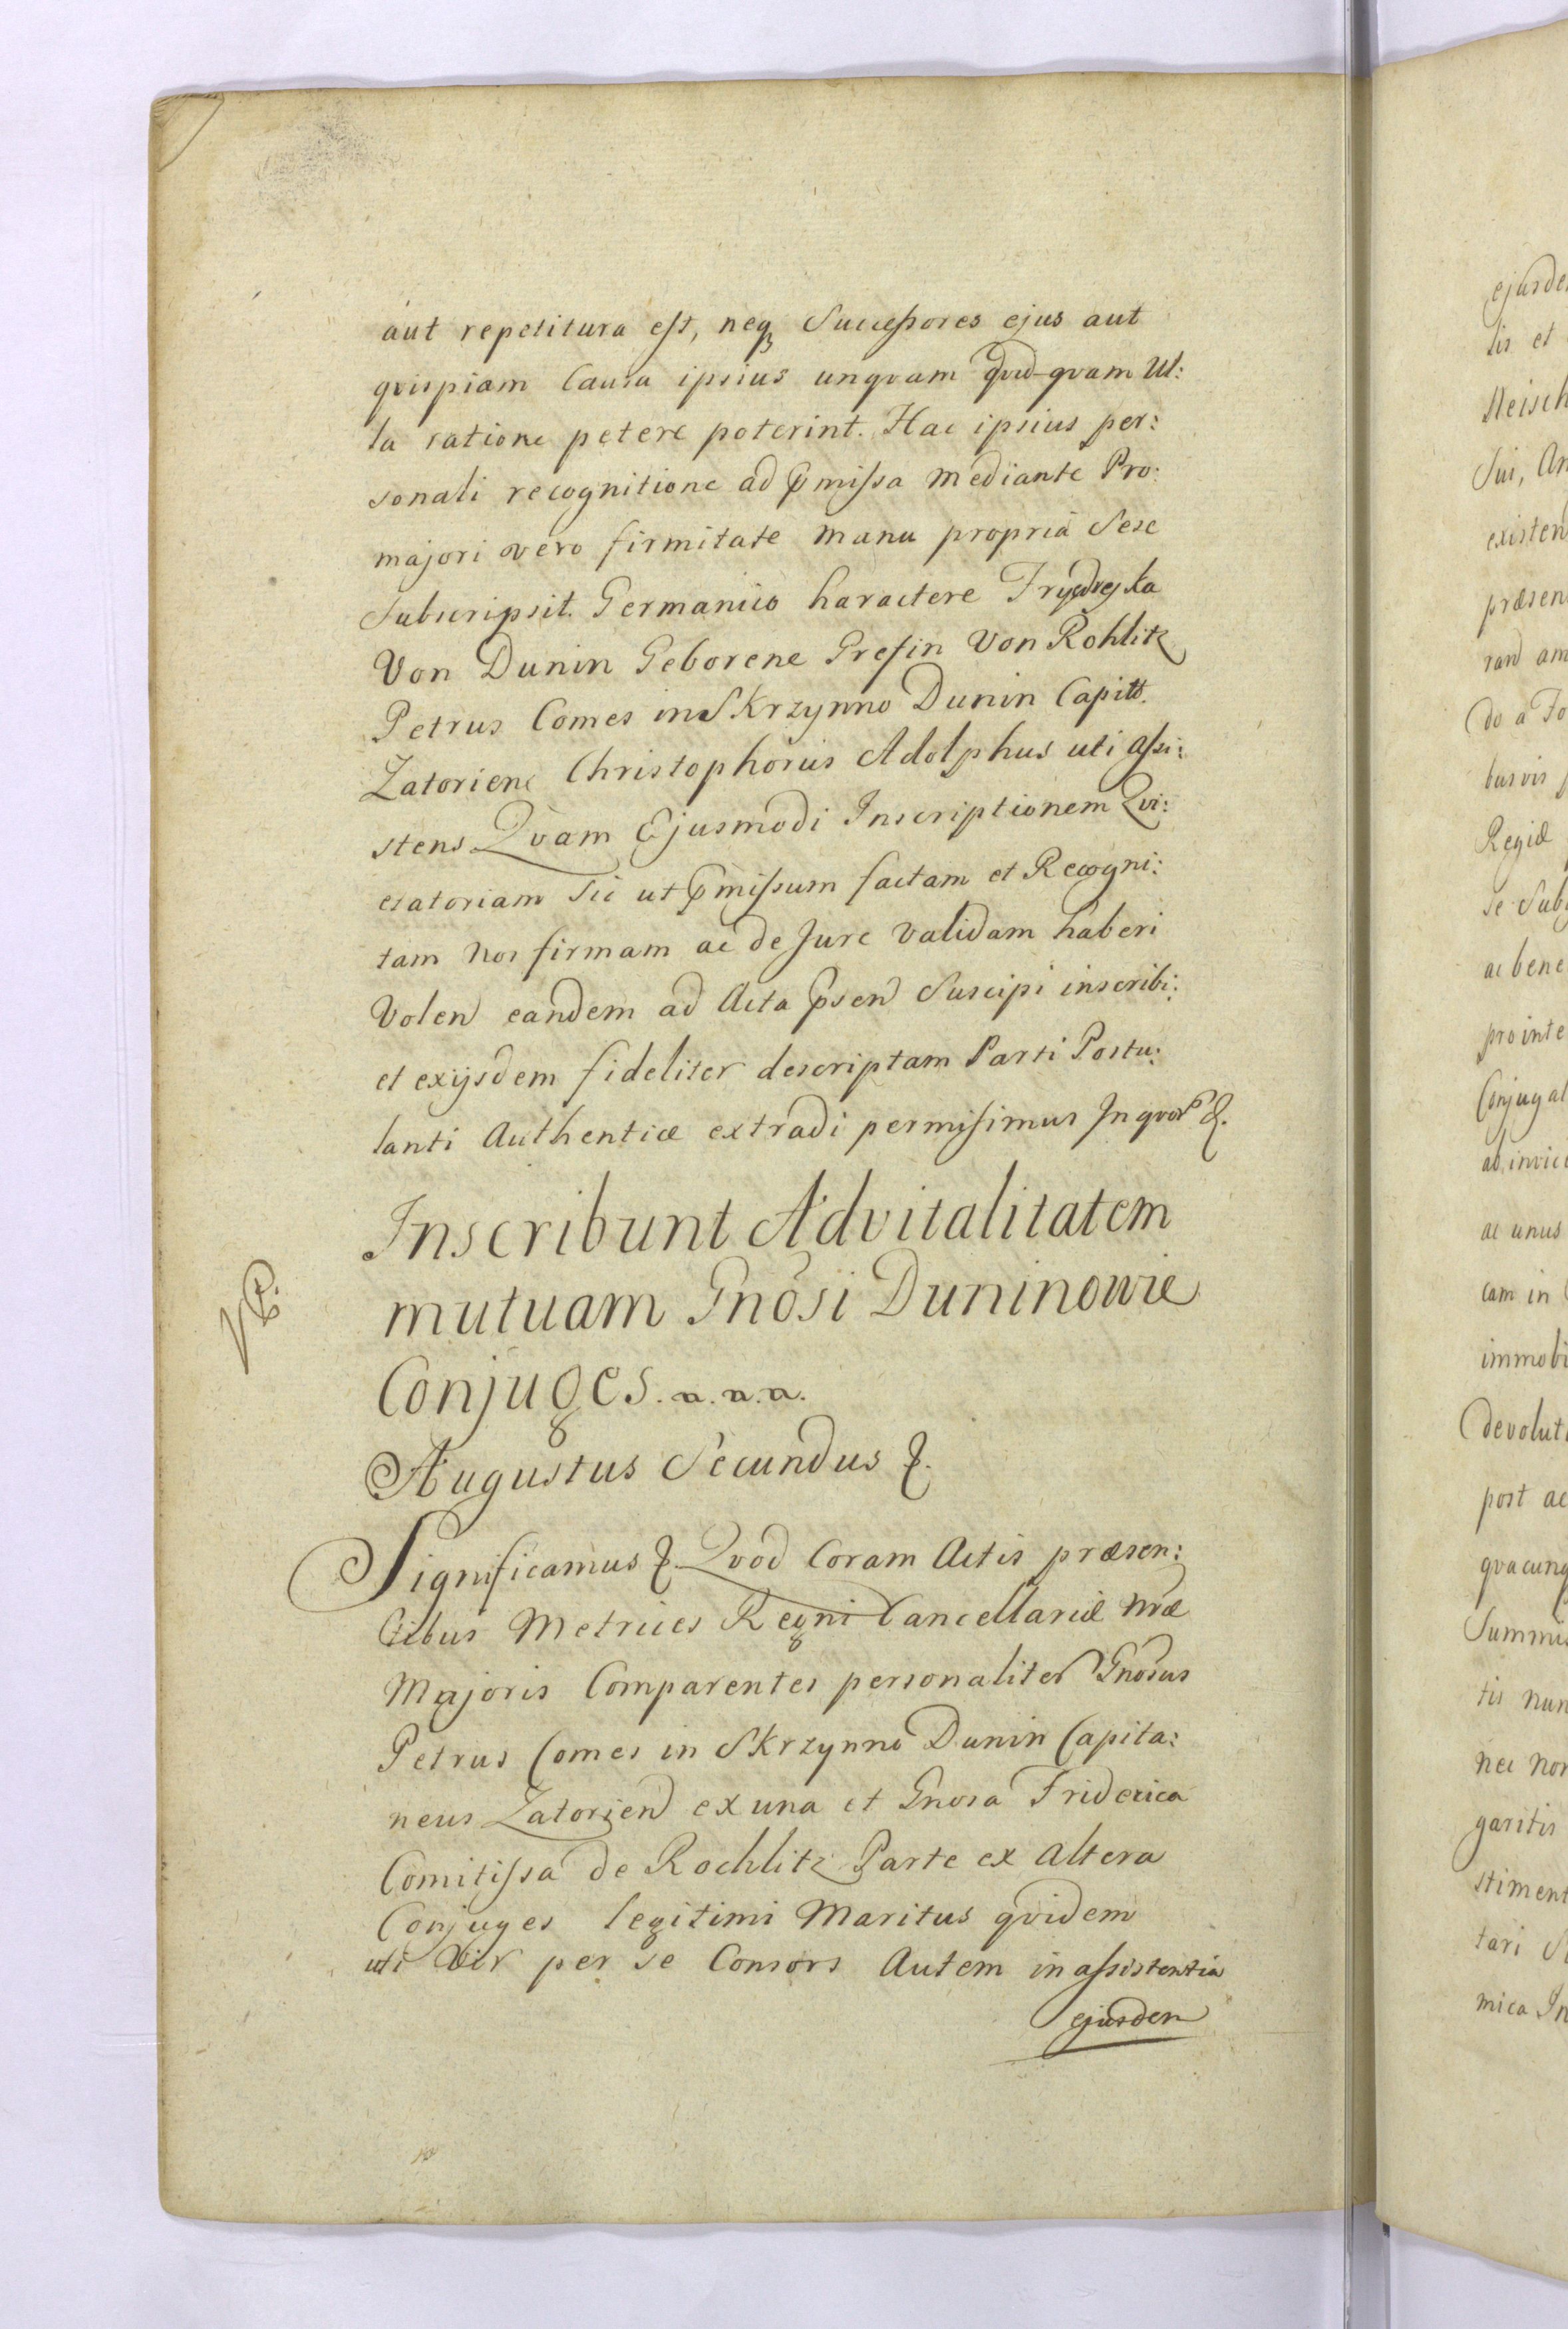 aut repetitura est, neq₃ Successores ejus aut
qvispiam Causa ipsius unqvam qvid-qvam Ul:
la ratione petere poterint. Hac ipsius per:
sonali recognitione ad pmissa mediante Pro:
majori vero firmitate manu propria Sese
Subscripsit. Germanico haractere Frydreyka
Von Dunin Geborene Grefin Von Rohlitz
Petrus Comes in Skrzynno Dunin Capitt.
Zatorien Christophorus Adolphus uti assi:
stens Qvam Ejusmodi Inscriptionem Qvi:
etatoriam sic ut pmissum factam et Recogni:
tam Nos firmam ac de Jure validam haberi
Volen eandem ad Acta psen Suscipi inscribi:
et exijsdem fideliter descriptam Parti Postu:
lanti Authentice extradi permisimus In qvor &.
NB.
Inscribunt Advitalitatem
mutuam Gnosi Duninowie
Conjuges. a. a. a.
Augustus Secundus &.
Significamus &. Qvod Coram Actis præsen:
tibus Metrices Regni Cancellariæ Nræ
Majoris Comparentes personaliter Gnosus
Petrus Comes in Skrzynno Dunin Capita:
neus Zatorien ex una et Gnosa Friderica
Comitissa de Rochlitz Parte ex Altera
Conjuges legitimi Maritus qvidem
uti Vir per se Consors Autem in assistentia
ejusdem
ejusde
tis et
Meisch
Sui, An
existen
præsen
rand am
do a Fo
busvis
Regiæ
se Sub
ac bene
pro inte
Conjugal
ab invice
ac unus
cam in
immobi
devolut
post ac
qvacunq
Summis
tis nun
nec non
garitis
stiment
tari
mica In